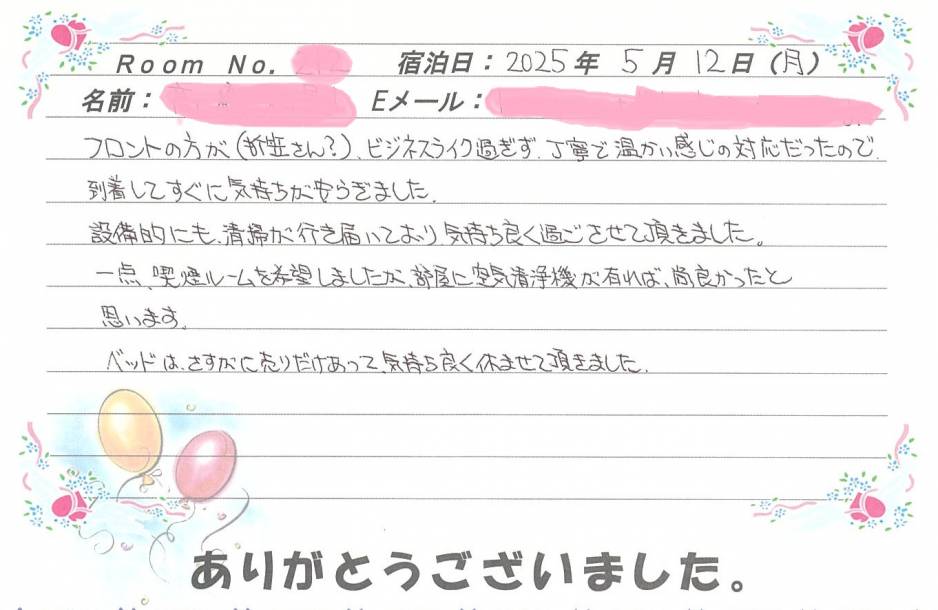 Room No. 宿泊日：2025年 5月 12日（月）
名前： Eメール：
フロントの方が(折笠さん?)、ビジネスライク過ぎず、丁寧で温かい感じの対応だったので、
到着してすぐに気持ちが安らぎました。
設備的にも、清掃が行き届いており、気持ち良く過ごさせて頂きました。
一点、喫煙ルームを希望しましたが、部屋に空気清浄機が有れば、尚良かったと
思います。
ベッドは、さすがに売りだけあって、気持ち良く休ませて頂きました。
ありがとうございました。